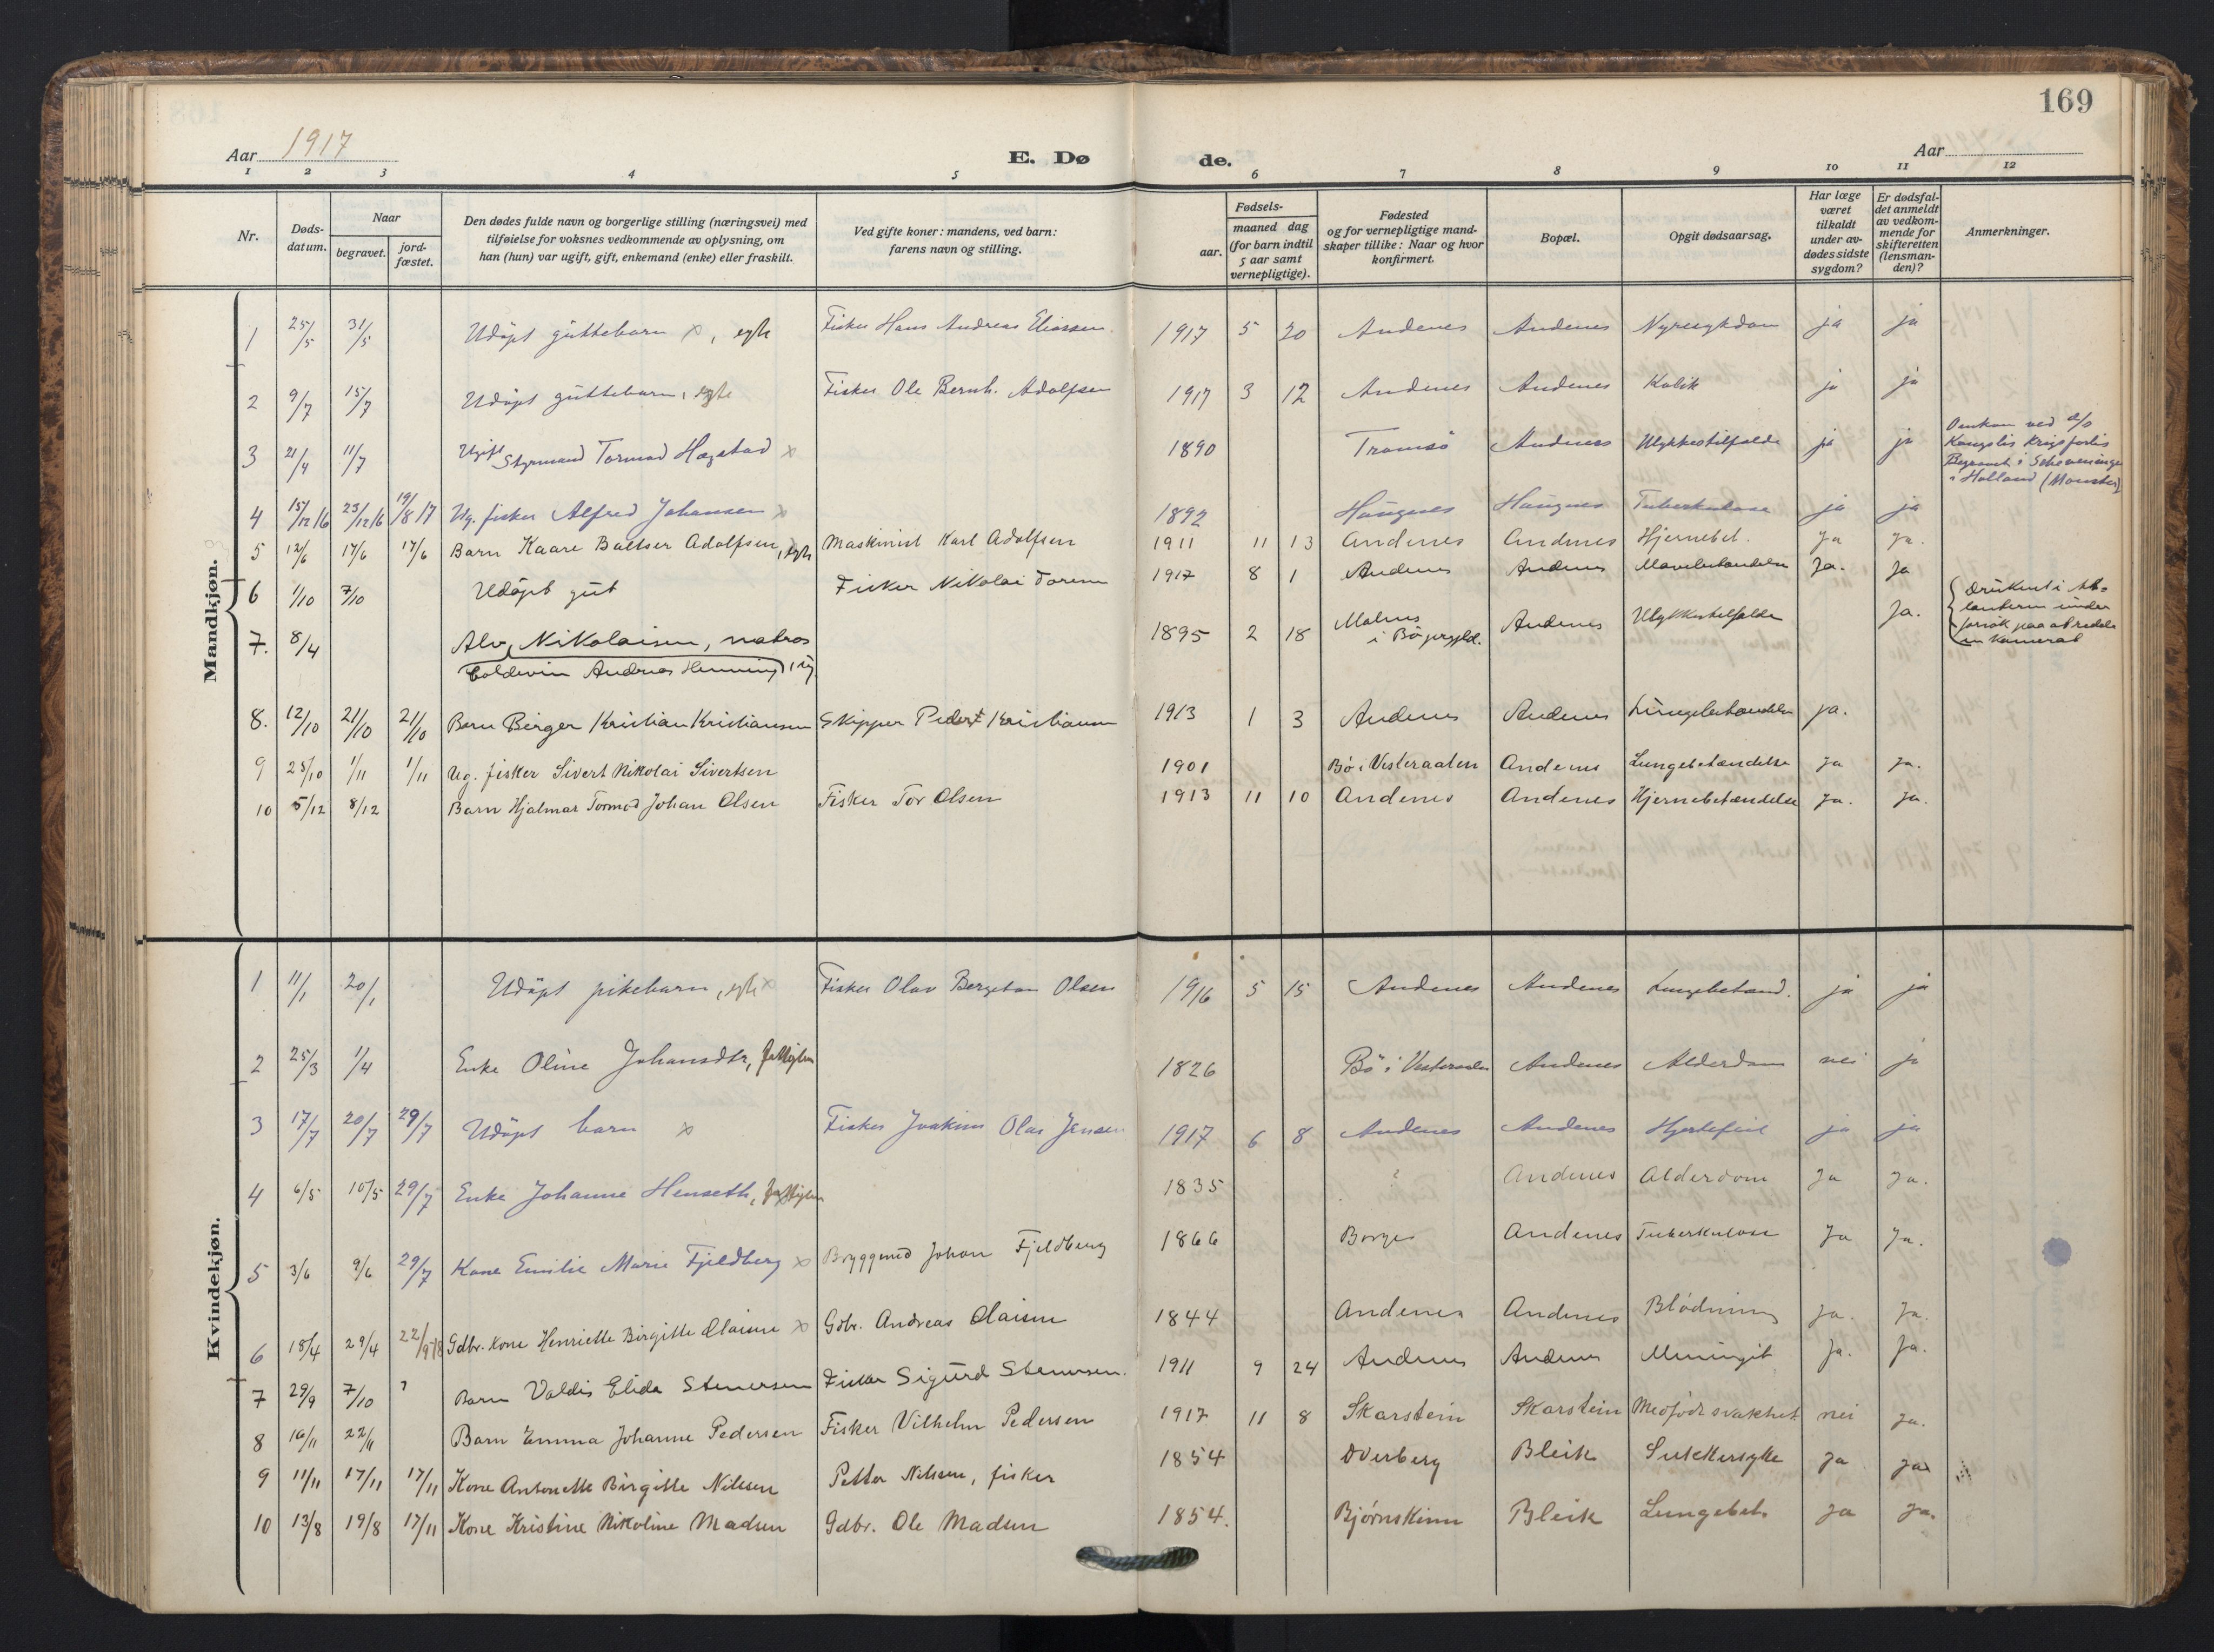 169
Aar 1917
E. Døde.
Aar
1 2 3 4 5 6 7 8 9 10 11 12
Nr.
Døds-datum.
Naar
begravet.
jord-fæstet.
Den dødes fulde navn og borgerlige stilling (næringsvei) med
tilføielse for voksnes vedkommende av oplysning, om
han (hun) var ugift, gift, enkemand (enke) eller fraskilt.
Ved gifte koner: mandens, ved barn:
farens navn og stilling.
Fødsels-
aar.
maaned dag
(for barn indtil
5 aar samt
vernepligtige).
Fødested
og for vernepligtige mand-
skaper tillike: Naar og hvor
konfirmert.
Bopæl.
Opgit dødsaarsag.
Har læge
været
tilkaldt
under av-
dødes sidste
sygdom?
Er dødsfal-
det anmeldt
av vedkom-
mende for
skifteretten
(lensman-
den)?
Anmerkninger.
Mandkjøn.
1 25/5 31/5 Udøpt guttebarn x, egte Fisker Hans Andreas Eliassen 1917 5 20 Andenes Andenes Nyresykdom ja ja
2 9/7 15/7 Udøpt guttebarn, egte Fisker Ole Bernh. Adolfsen 1917 3 12 Andenes Andenes Kolik ja ja
3 21/4 11/7 Ugift Styrmand Tormod Hagstad x 1890 Tromsö Andenes Ulykkestilfælde ja ja
Omkom ved
Kongslis krigsforlis
Begravet i Scheveninge
i Holland (Monster)
4 15/12 16 23/12 16 19/8 17 Ug. fisker Alfred Johansen x 1892 Haugnes Haugnes Tuberkulose ja ja
5 12/6 17/6 17/6 Barn Kaare Baltser Adolfsen, egte Maskinist Karl Adolfsen 1911 11 13 Andenes Andenes Hjernebet. Ja Ja.
6 1/10 7/10 Udøpt gut Fisker Nikolai 1917 8 1 Andenes Andenes Mavebetændelse Ja. Ja
7. 8/4 Alv, Nikolaisen, matros 1895 2 18 Malnes i Bø prgjld. Andenes Ulykkestilfælde Ja.
Coldevin Andreas Henning, ug
Druknet i At-
lanteren under
forsøk paa at redde
en kamerat
8. 12/10 21/10 21/10 Barn Birger Kristian Kristiansen Skipper Peder Kristiansen 1913 1 3 Andenes Andenes Lungebetændelse ja.
9 25/10 1/11 1/11 Ug. fisker Sivert Nikolai Sivertsen 1901 Bø i Vesteraalen Andenes Lungebetændelse Ja Ja.
10 5/12 8/12 Barn Hjalmar Tormod Johan Olsen Fisker Tor Olsen 1913 11 10 Andenes Andenes Hjernebetændelse Ja. Ja.
Kvindekjøn.
1 11/1 20/1 Udøpt pikebarn, egte x Fisker Olav Bergeton Olsen 1916 5 15 Andenes Andenes Lungebetænd. ja ja
2 25/3 1/4 Enke Oline Johansdtr, fattiglem 1826 Bö i Vesteraalen Andenes Alderdom nei ja
3 17/7 20/7 29/7 Udøpt barn x Fisker Joakim Olai Jensen 1917 6 8 Andenes Andenes Hjertefeil ja ja
4 6/5 10/5 29/7 Enke Johanne Henseth, fattiglem 1835 ? Andenes Alderdom Ja Ja.
5 3/6 9/6 29/7 Kone Emilie Marie Fjeldberg x Bryggemd Johan Fjeldberg 1866 Borge Andenes Tuberkulose Ja Ja.
6 18/4 29/4 22/9 18 Gdbr. kone Henriette Birgitte Olaisen x Gdbr. Andreas Olaisen 1844 Andenes Andenes Blødning Ja. Ja.
7 29/9 7/10 ? Barn Valdis Elida Stenersen Fisker Sigurd Stenersen. 1911 9 24 Andenes Andenes Meningit Ja. Ja.
8 16/11 22/11 Barn Emma Johanne Pedersen Fisker Vilhelm Pedersen 1917 11 8 Skarstein Skarstein Medfødt svakhet nei Ja.
9 11/11 17/11 17/11 Kone Antonette Birgitte Nilssen Petter Nilssen, fisker 1854 Dverberg Bleik Sukkersyke Ja Ja
10 13/8 19/8 17/11 Kone Kristine Nikoline Madsen Gdbr. Ole Madsen 1854. Bjørnskinn Bleik Lungebet. Ja Ja.